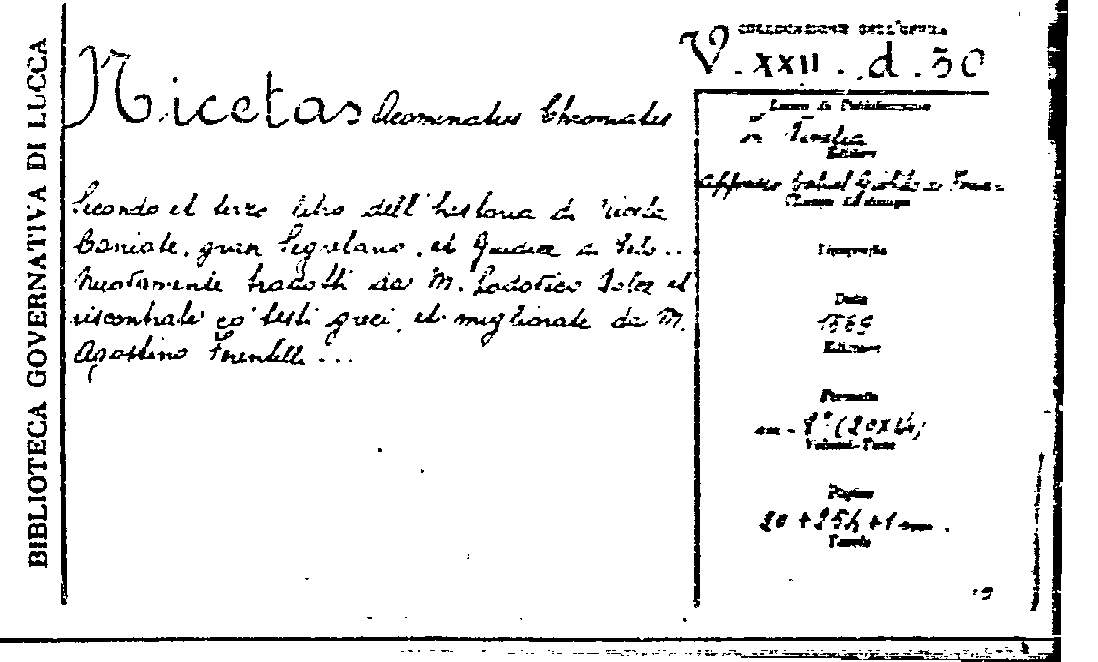 BIBLIOTECA GOVERNATIVA DI LUCCA
COLLOCAZIONE DELL'OPERA
V. XXII. d. 30
Nicetas Acominatus Choniates
Secondo et terzo libro dell'historia di Niceta
Coniate, gran Segretario, et Giudice di Velo..
Nuovamente tradotti da M. Lodovico Dolce et
riscontrati co' testi greci, et migliorate da M.
Agostino Ferentilli ...
Luogo di Pubblicazione
in Venetia
Editore
appresso Gabriel Giolito de
Tipografia
Data
1569
Edizione
Formato
in-8° (20x14)
Volumi-Tomi
Pagine
20 + 254 + 1
Tavole